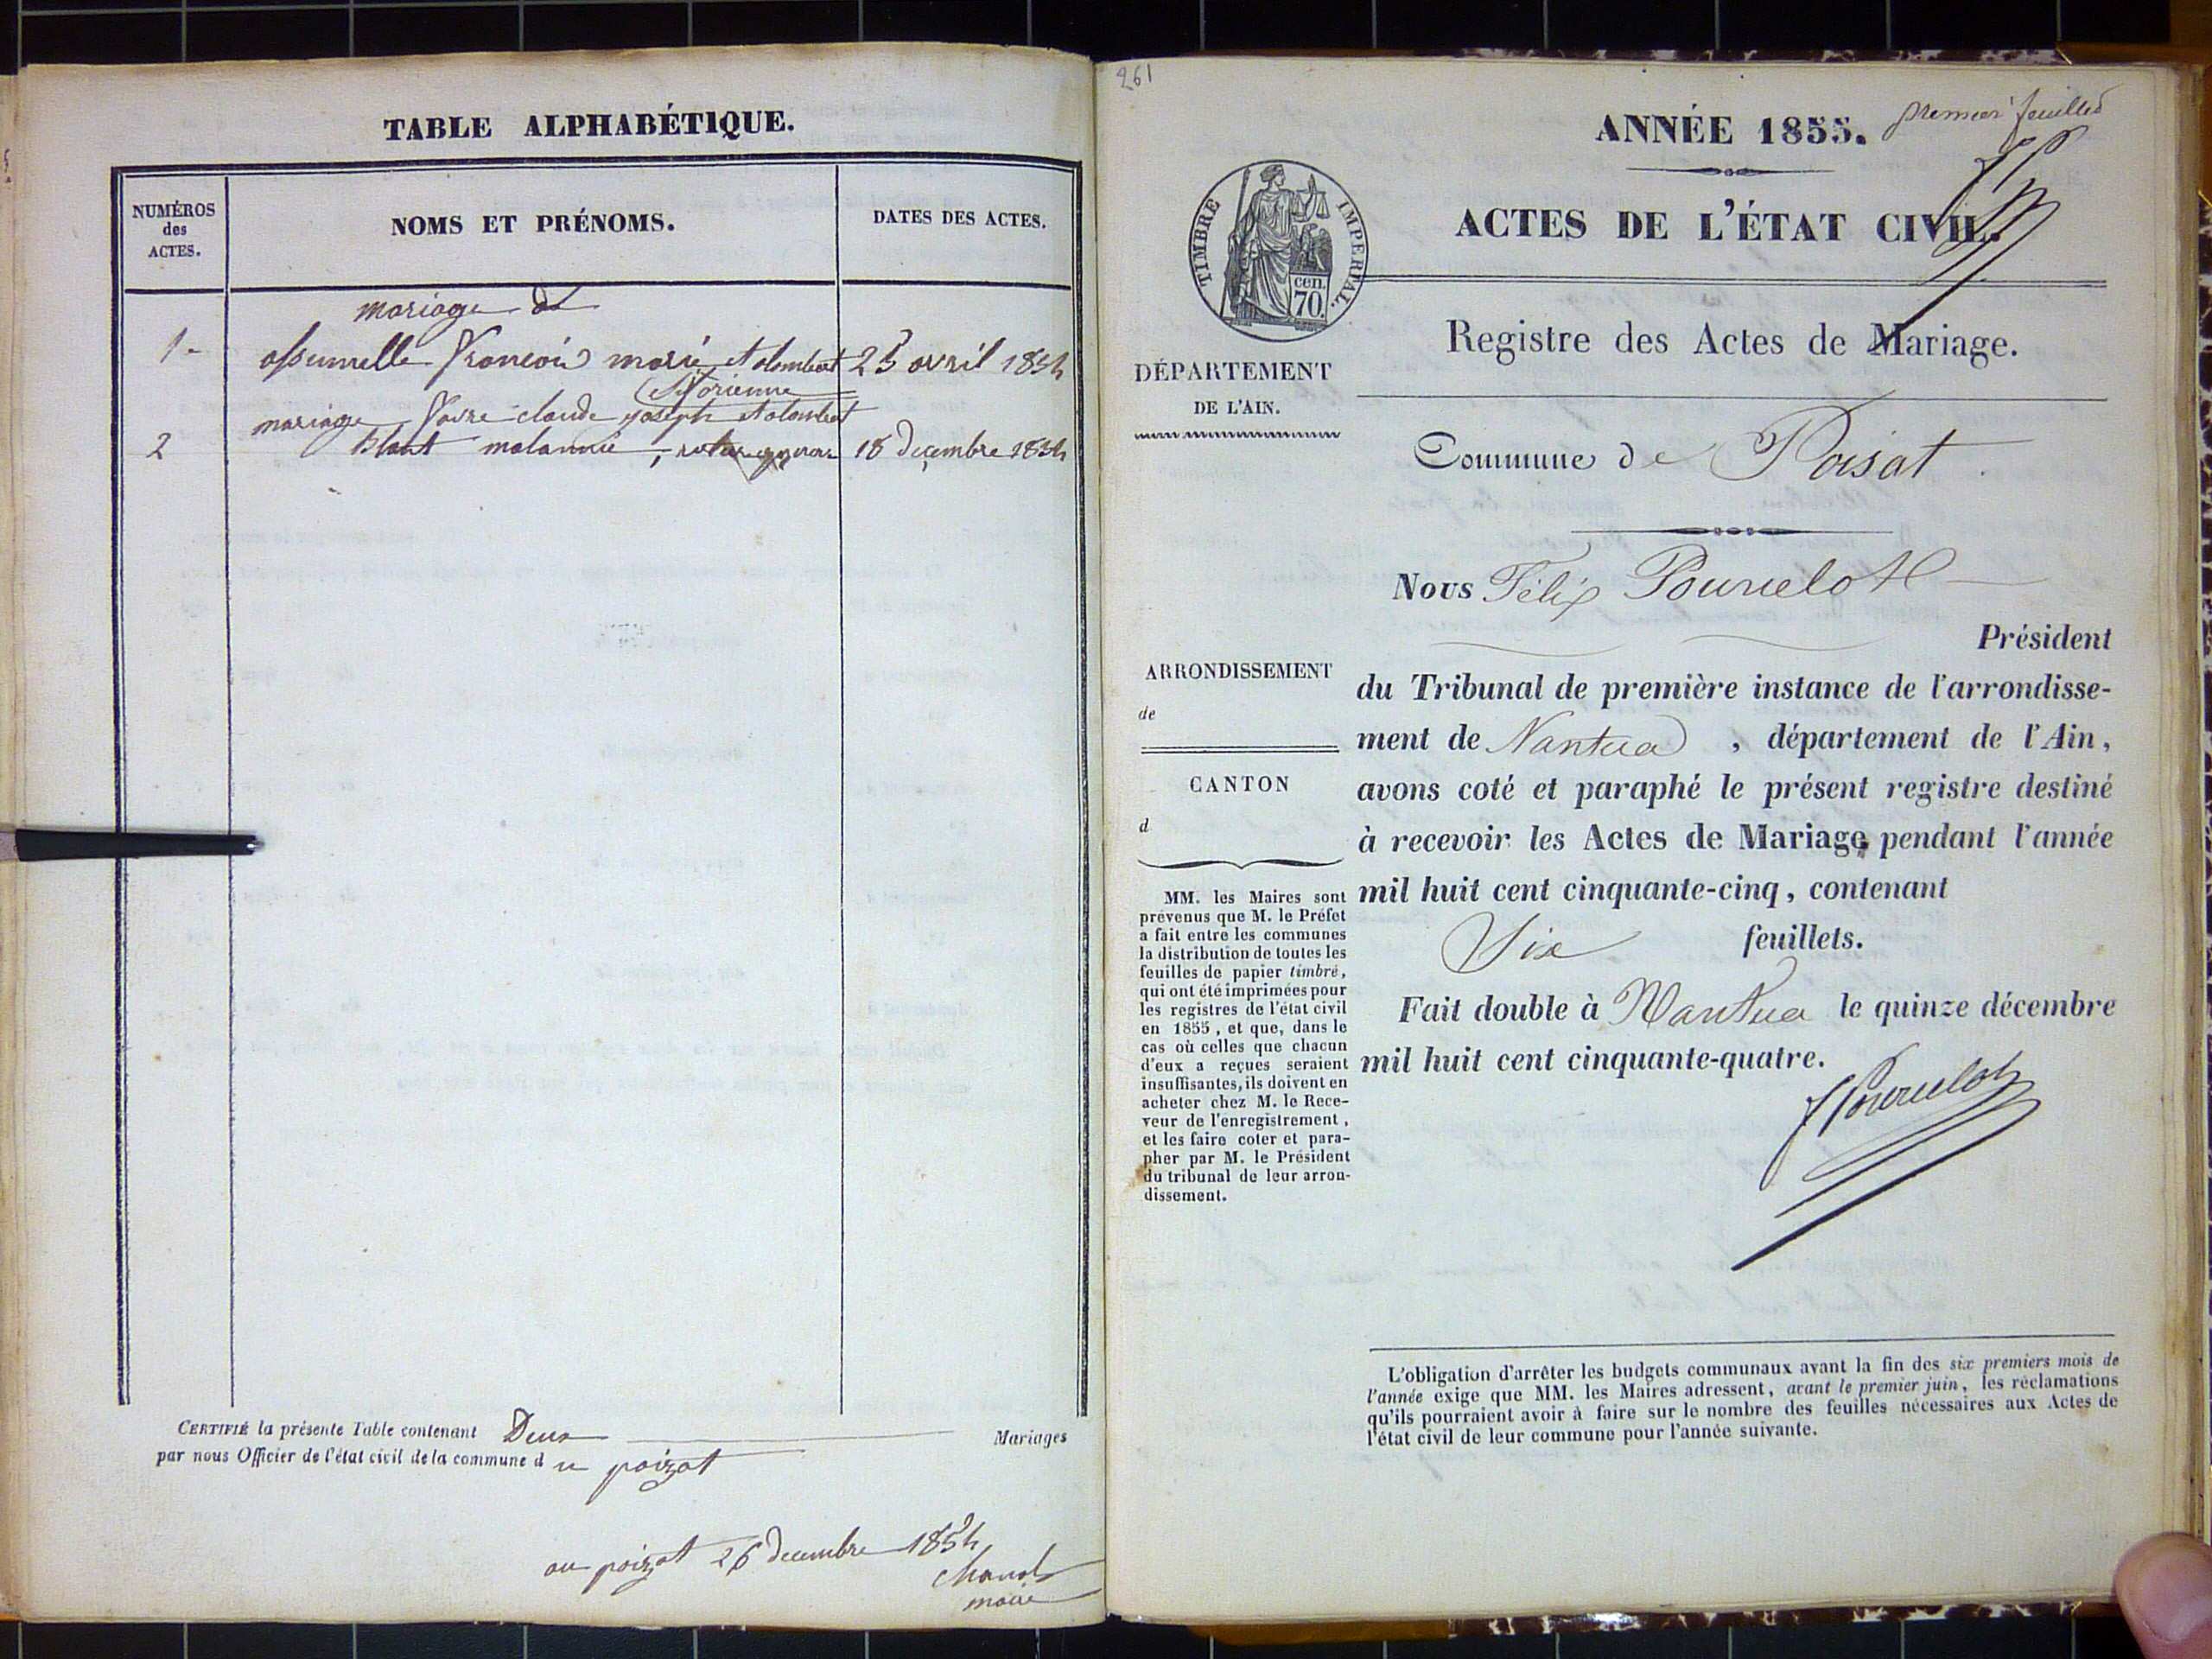 TABLE ALPHABÉTIQUE.
NUMÉROS
des
ACTES.
NOMS ET PRÉNOMS.
DATES DES ACTES.
mariage de
1 - françois marié et 25 avril 1854
mariage favre claude joseph et
2 18 decembre 1854
CERTIFIÉ la présente Table contenant Deux Mariages
par nous Officier de l'état civil de la commune d u poizat
au poizat 26 decembre 1854
maire
261
ANNÉE 1855. premier feuillet
TIMBRE IMPERIAL.
cen.
70.
ACTES DE L'ÉTAT CIVIL.
Registre des Actes de Mariage.
DÉPARTEMENT
DE L'AIN.
Commune de Poisat
Nous Félix Pourcelot
Président
ARRONDISSEMENT
de
CANTON
d
du Tribunal de première instance de l'arrondisse-
ment de Nantua , département de l'Ain,
avons coté et paraphé le présent registre destiné
à recevoir les Actes de Mariage pendant l'année
mil huit cent cinquante-cinq, contenant
Six feuillets.
Fait double à Nantua le quinze décembre
mil huit cent cinquante-quatre.
f Pourcelot
MM. les Maires sont
prévenus que M. le Préfet
a fait entre les communes
la distribution de toutes les
feuilles de papier timbré,
qui ont été imprimées pour
les registres de l'état civil
en 1855, et que, dans le
cas où celles que chacun
d'eux a reçues seraient
insuffisantes, ils doivent en
acheter chez M. le Rece-
veur de l'enregistrement,
et les faire coter et para-
pher par M. le Président
du tribunal de leur arron-
dissement.
L'obligation d'arrêter les budgets communaux avant la fin des six premiers mois de
l'année exige que MM. les Maires adressent, avant le premier juin, les réclamations
qu'ils pourraient avoir à faire sur le nombre des feuilles nécessaires aux Actes de
l'état civil de leur commune pour l'année suivante.